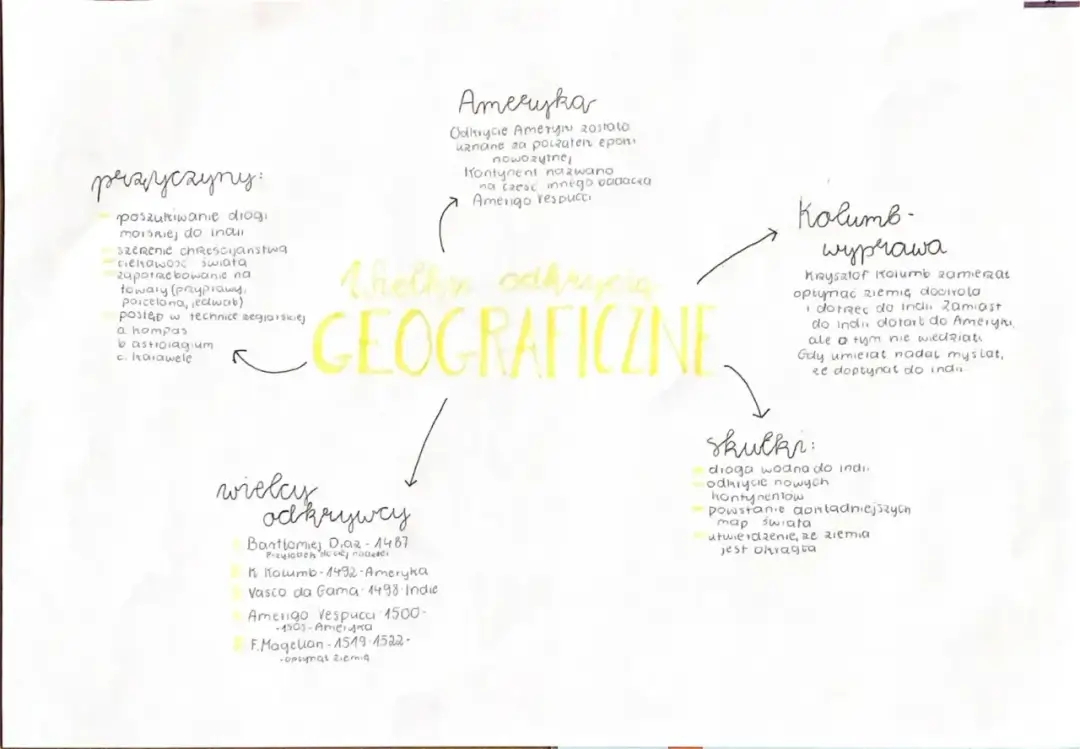 Wielkie odkrycia
GEOGRAFICZNE
Ameryka
Odkrycie Ameryki zostało
uznane za początek epoki
nowożytnej
Kontynent nazwano
na cześć innego badacza
Amerigo Vespucci
przyczyny:
poszukiwanie drogi
morskiej do Indii
szerenie chrześcijaństwa
ciekawość świata
zapotrzebowanie na
towary (przyprawy,
porcelana, jedwab)
postęp w technice żeglarskiej
a. kompas
b astrolabium
c. karawele
Kolumb-
wyprawa
Krzysztof Kolumb zamierzał
opłynąć ziemię dookoła
i dotrzeć do Indii Zamiast
do Indii dotarł do Ameryki,
ale o tym nie wiedział.
Gdy umierał nadal myślał,
że dopłynął do Indii
skutki:
droga wodna do Indii
odkrycie nowych
kontynentów
powstanie dokładniejszych
map świata
utwierdzenie, że ziemia
jest okrągła
wielcy
odkrywcy
Bartłomiej Diaz - 1487
Przylądek dobrej nadziei
K Kolumb - 1492 - Ameryka
Vasco da Gama 1498 Indie
Amerigo Vespucci 1500-
-Ameryka
F. Magellan - 1519 - 1522 -
- opłynął ziemię